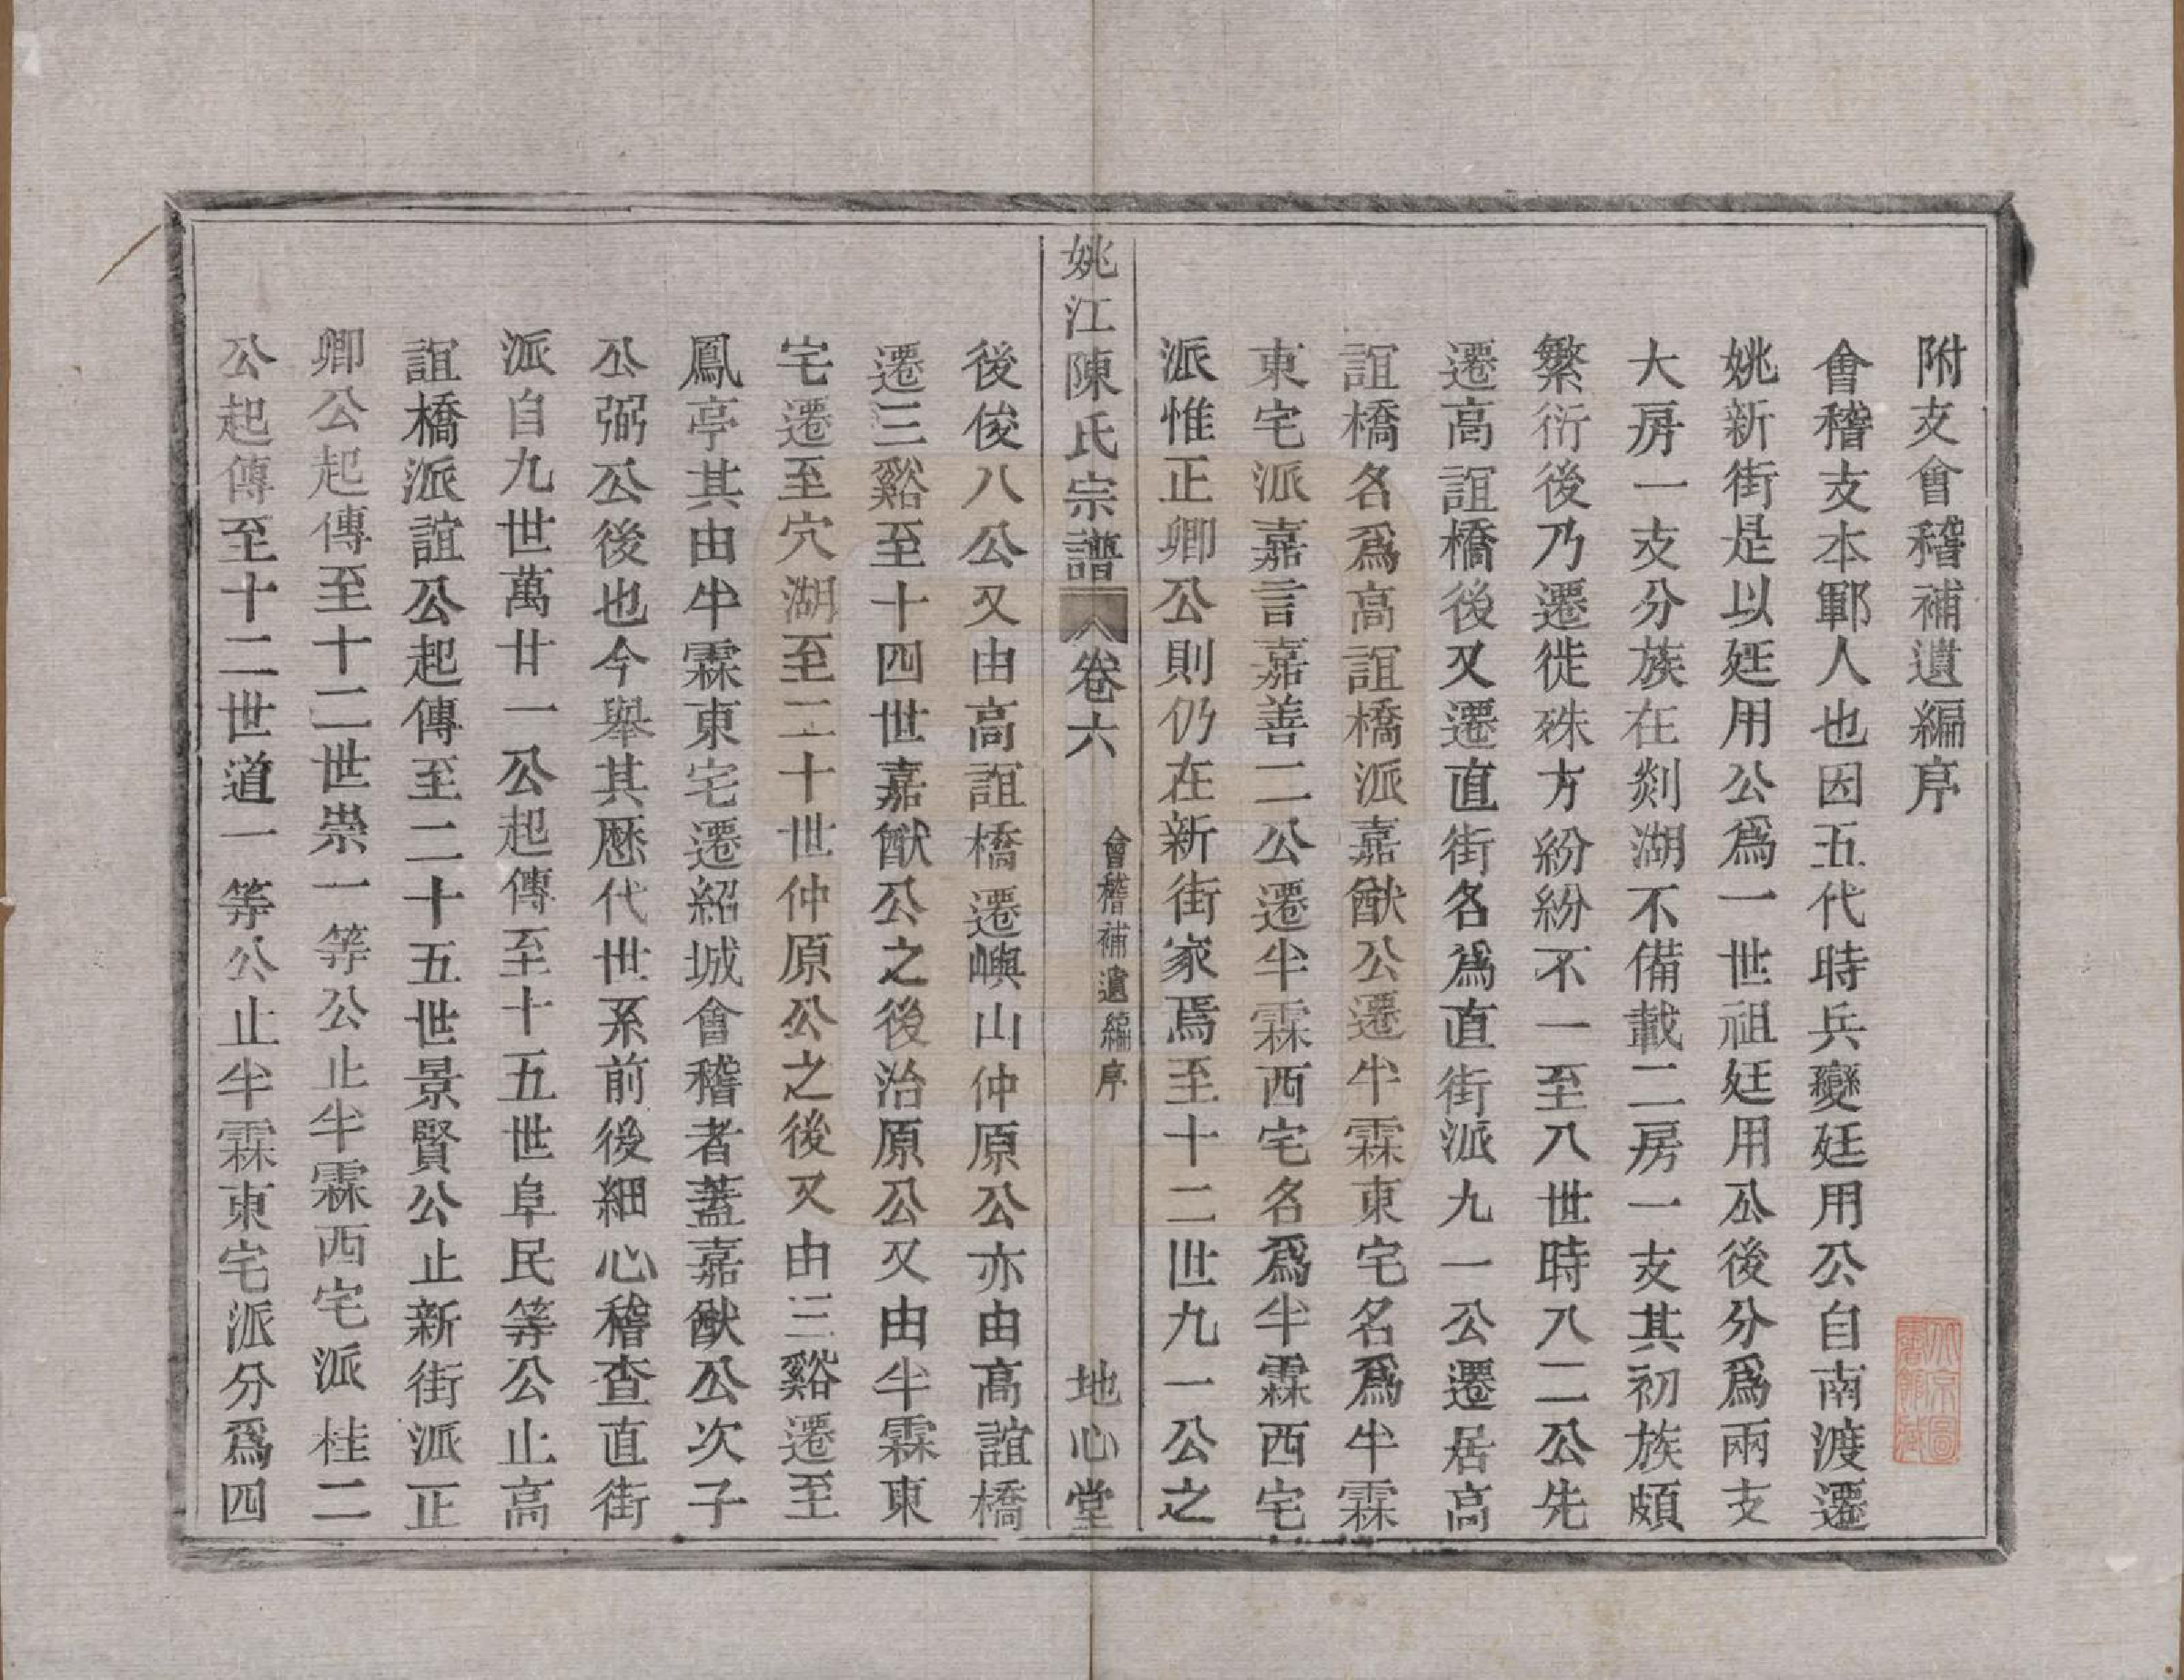 附支會稽補遺編序
會稽支本鄞人也因五代時兵變廷用公自南渡遷
姚新街是以廷用公爲一世祖廷用公後分爲兩支
大房一支分族在剡湖不備載二房一支其初族頗
繁衍後乃遷徙殊方紛紛不一至八世時八二公先
遷高誼橋後又遷直街名爲直街派九一公遷居高
誼橋名爲高誼橋派嘉猷公遷半霖東宅名爲半霖
東宅派嘉言嘉善二公遷半霖西宅名爲半霖西宅
派惟正卿公則仍在新街家焉至十二世九一公之
姚江陳氏宗譜 卷六 會稽補遺編序 地心堂
後俊八公又由高誼橋遷嶼山仲原公亦由高誼橋
遷三谿至十四世嘉猷公之後治原公又由半霖東
宅遷至穴湖至二十世仲原公之後又由三谿遷至
鳳亭其由半霖東宅遷紹城會稽者蓋嘉猷公次子
公弼公後也今舉其歷代世系前後細心稽查直街
派自九世萬廿一公起傳至十五世阜民等公止高
誼橋派誼公起傳至二十五世景賢公止新街派正
卿公起傳至十二世崇一等公止半霖西宅派桂二
公起傳至十二世道一等公止半霖東宅派分爲四
北京圖書館藏